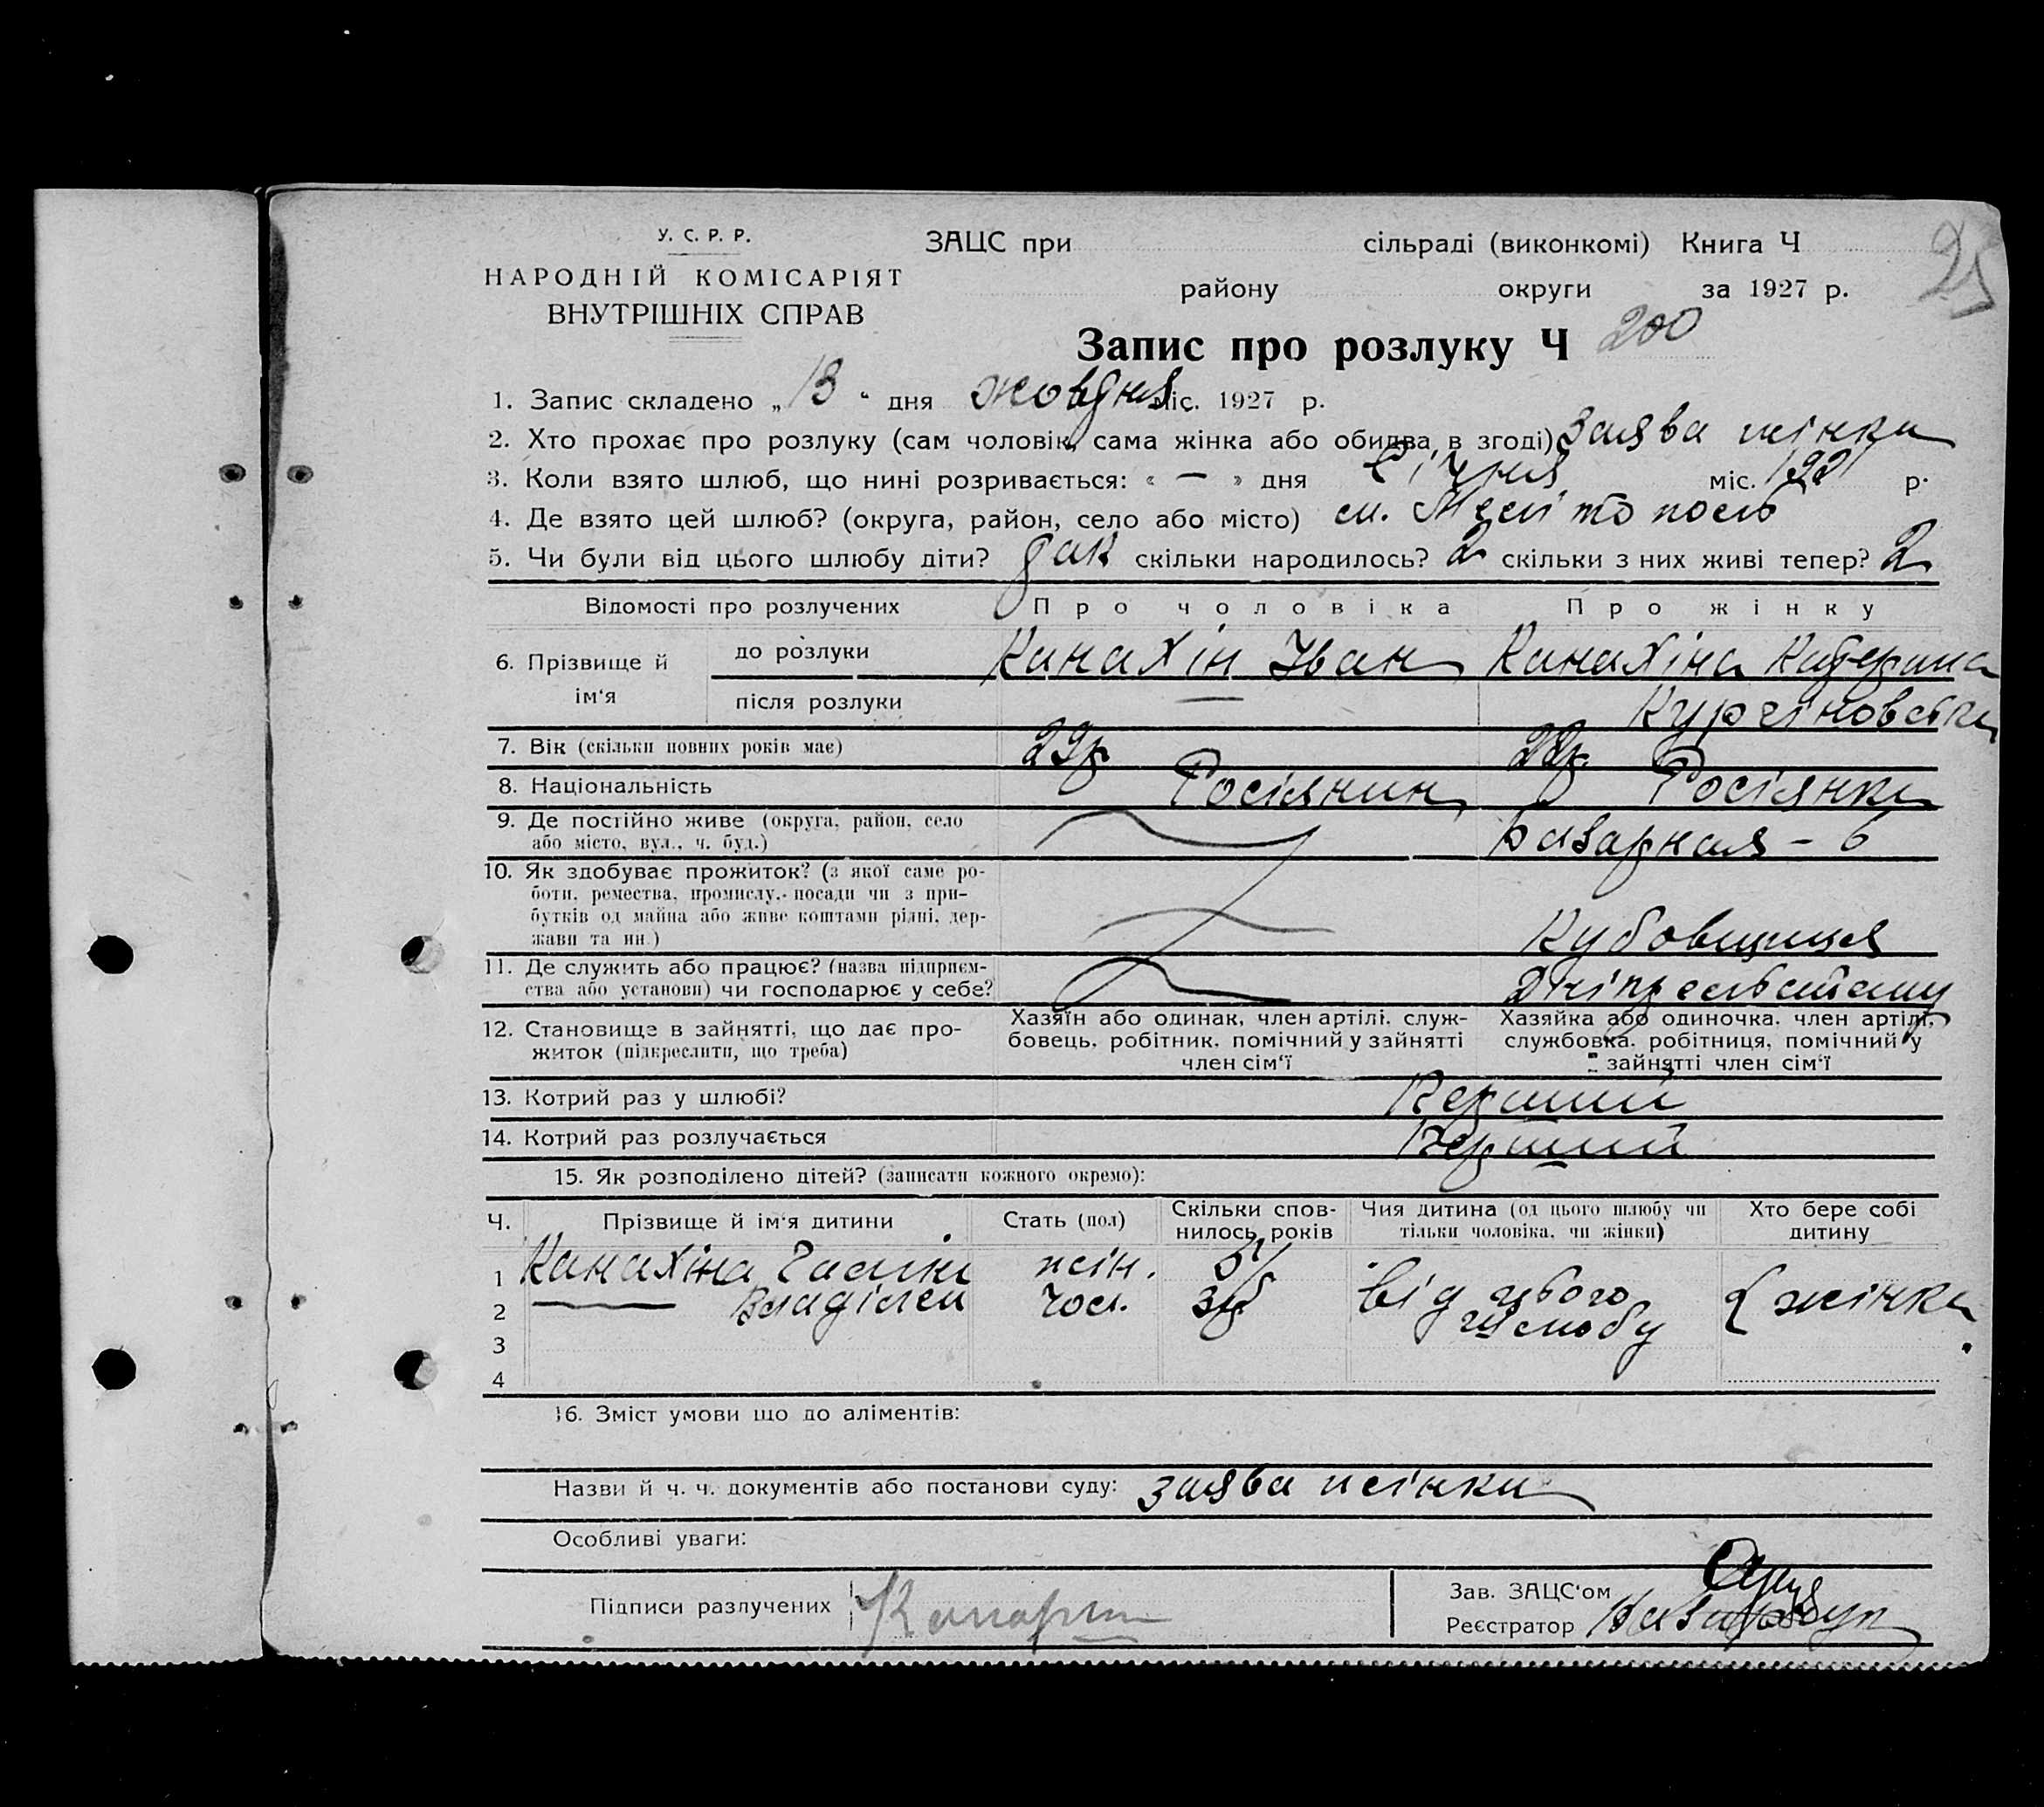 25
У. С. Р. Р.
НАРОДНІЙ КОМІСАРІЯТ
ВНУТРІШНІХ СПРАВ
ЗАЦС при сільраді (виконкомі) Книга Ч
району округи за 1927 р.
Запис про розлуку Ч 200
1. Запис складено „13“ дня жовтня міс. 1927 р.
2. Хто прохає про розлуку (сам чоловік, сама жінка або обидва в згоді) заява жінки
3. Коли взято шлюб, що нині розривається: « — » дня Січня міс. 1921 р.
4. Де взято цей шлюб? (округа, район, село або місто) м. Мелітополь
5. Чи були від цього шлюбу діти? так скільки народилось? 2 скільки з них живі тепер? 2
Відомості про розлучених Про чоловіка Про жінку
6. Прізвище й ім‘я до розлуки Канахін Іван Канахіна Катерина
після розлуки —
7. Вік (скільки повних років має) 29р. 28р.
8. Національність Росіянин Росіянка
9. Де постійно живе (округа, район, село
або місто, вул., ч. буд.) Базарная – 6
10. Як здобуває прожиток? (з якої саме ро-
боти, ремества, промислу, посади чи з при-
бутків од майна або живе коштами рідні, дер-
жави та ин.) Кубовщиця
11. Де служить або працює? (назва підприєм-
ства або установи) чи господарює у себе?
12. Становище в зайнятті, що дає про-
житок (підкреслити, що треба)
Хазяїн або одинак, член артілі, служ-
бовець, робітник, помічний у зайнятті
член сім‘ї
Хазяйка або одиночка, член артілі,
службовка, робітниця, помічний у
зайнятті член сім‘ї
13. Котрий раз у шлюбі? Перший
14. Котрий раз розлучається Перший
15. Як розподілено дітей? (записати кожного окремо):
Ч. Прізвище й ім‘я дитини Стать (пол) Скільки спов-
нилось років Чия дитина (од цього шлюбу чи
тільки чоловіка, чи жінки) Хто бере собі
дитину
1 Канахіна Галина жін. 5 від цього
2 — Владілен чол. 3 шлюбу { жінка
3
4
16. Зміст умови що до аліментів:
Назви й ч. ч. документів або постанови суду: заява жінки
Особливі уваги:
Підписи разлучених
Зав. ЗАЦС‘ом
Реєстратор